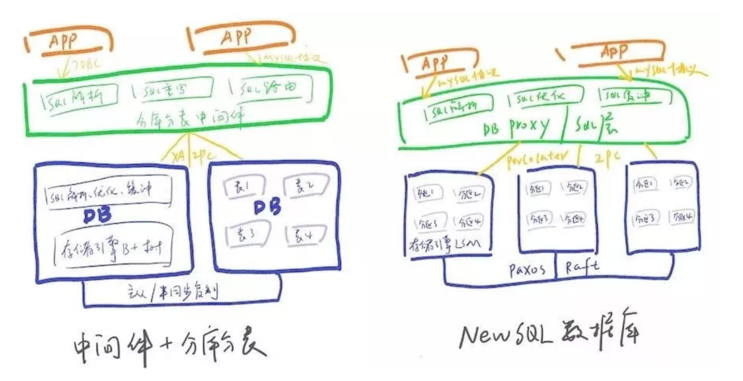 APP
APP
JDBC
mysql协议
SQL解析
SQL重写
SQL路由
分库分表中间件
XA 2PC
SQL解析、优化、缓冲
DB
存储引擎B+树
表1
表2
DB
表3
表4
主从/半同步复制
中间件+分库分表
APP
APP
mysql协议
mysql协议
SQL解析
SQL优化
SQL缓冲
DB Proxy / SQL层
percolater 2PC
分区1 分区2
分区3 分区4
存储引擎LSM
分区1 分区2
分区3 分区4
分区1 分区2
分区3 分区4
paxos Raft
NewSQL 数据库